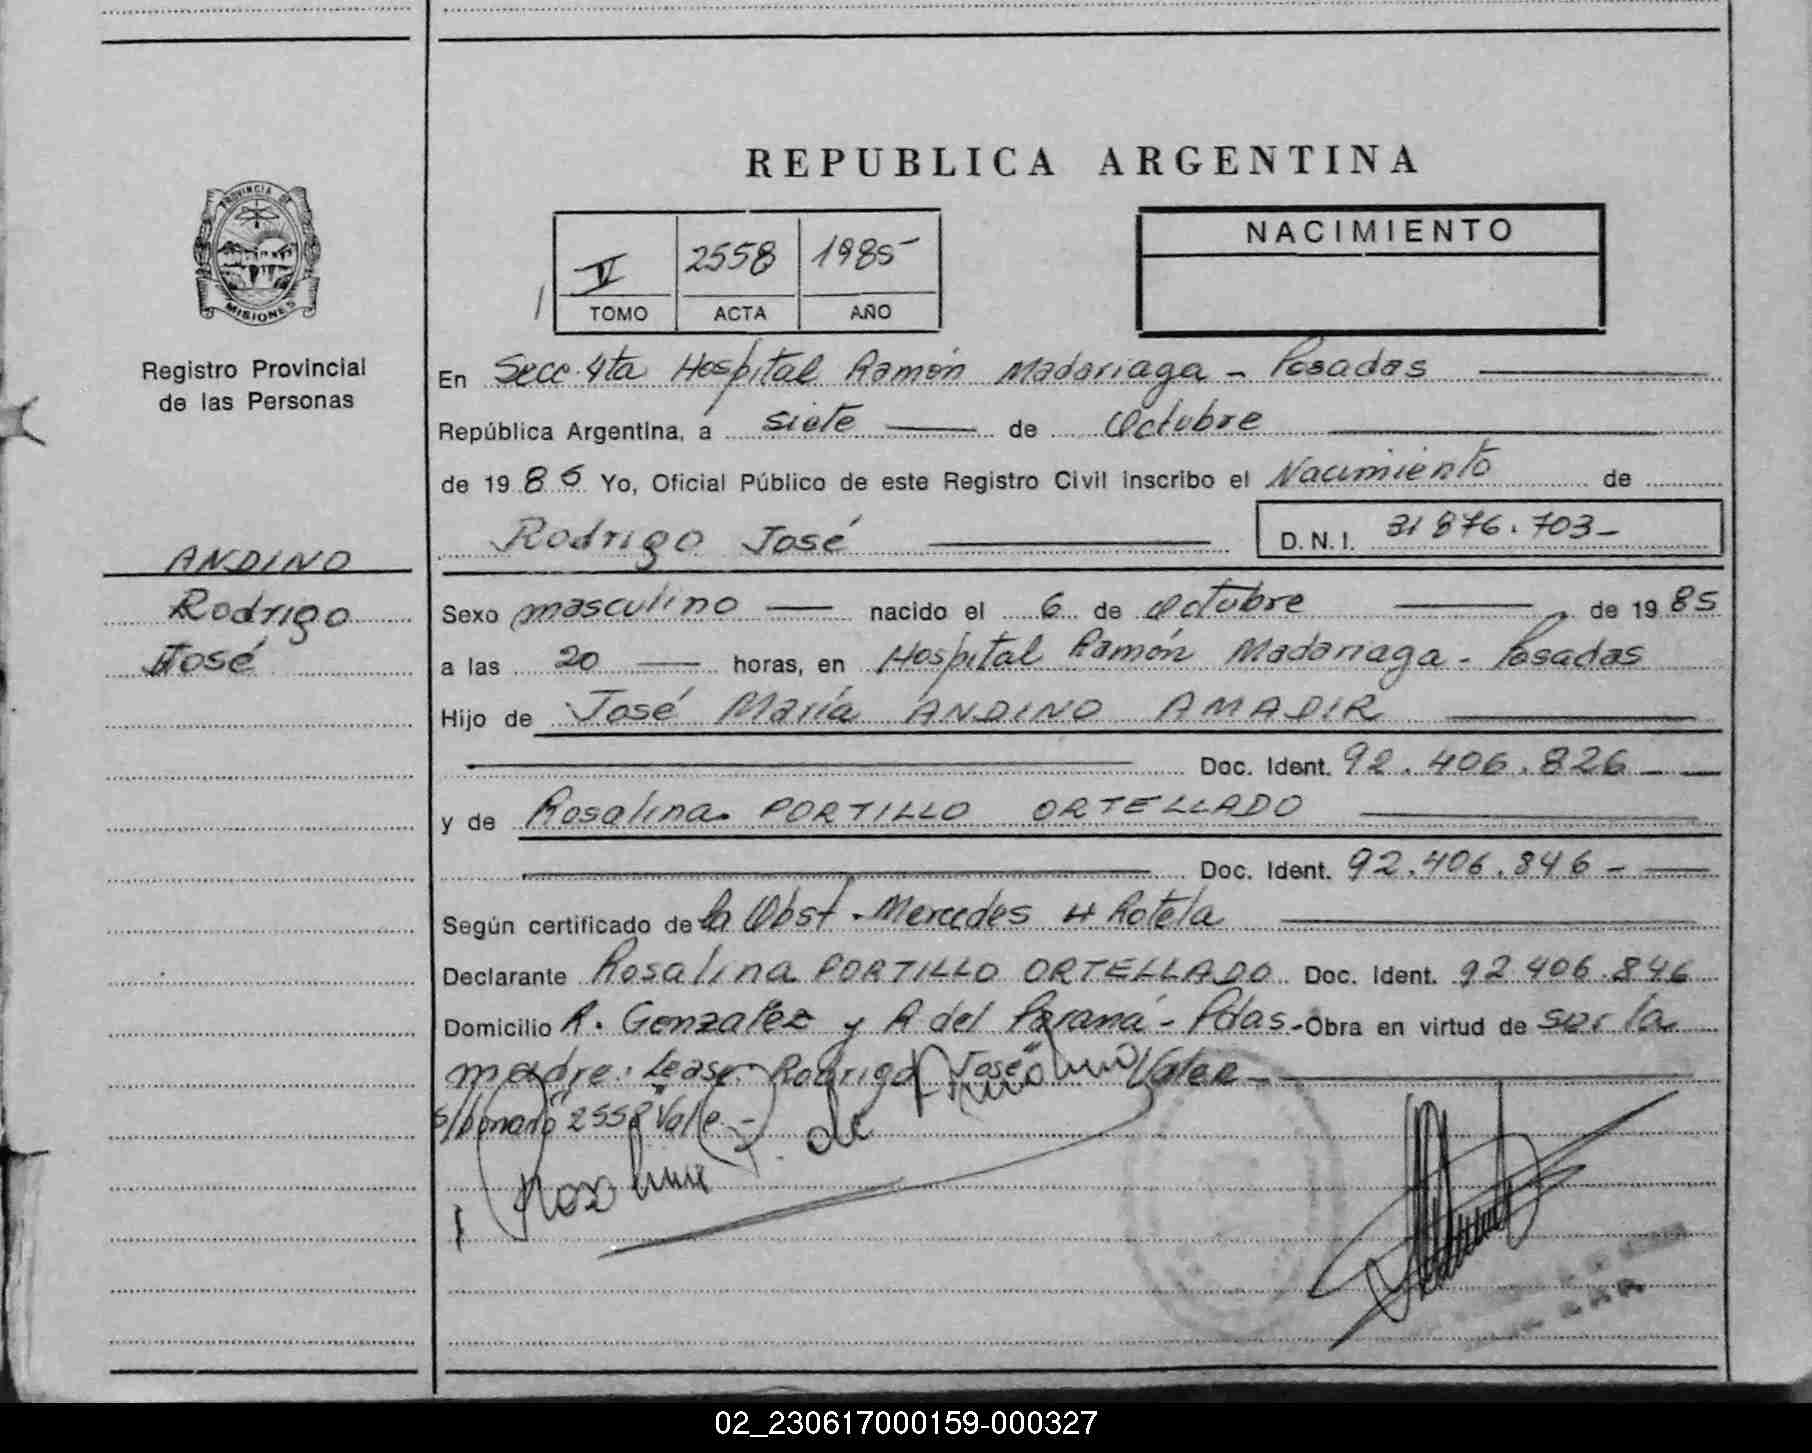 REPUBLICA ARGENTINA
PROVINCIA DE
MISIONES
Registro Provincial
de las Personas
ANDINO
Rodrigo
José
V 2558 1985
TOMO ACTA AÑO
NACIMIENTO
En Secc. 4ta Hospital Ramón Madariaga - Posadas
República Argentina, a siete de Octubre
de 1985 Yo, Oficial Público de este Registro Civil inscribo el Nacimiento de
Rodrigo José D.N.I. 31876.703-
Sexo masculino nacido el 6 de Octubre de 1985
a las 20 horas, en Hospital Ramón Madariaga - Posadas
Hijo de José María ANDINO AMADIR
Doc. Ident. 92.406.826
y de Rosalina PORTILLO ORTELLADO
Doc. Ident. 92.406.846 -
Según certificado de la Obst. Mercedes H Rotela
Declarante Rosalina PORTILLO ORTELLADO Doc. Ident. 92.406.846
Domicilio A. Gonzalez y A del Paraná - Pdas. - Obra en virtud de ser la
madre: Lease: Rodrigo "José" Vale -
s/borrado "2558" Vale. -
02_230617000159-000327